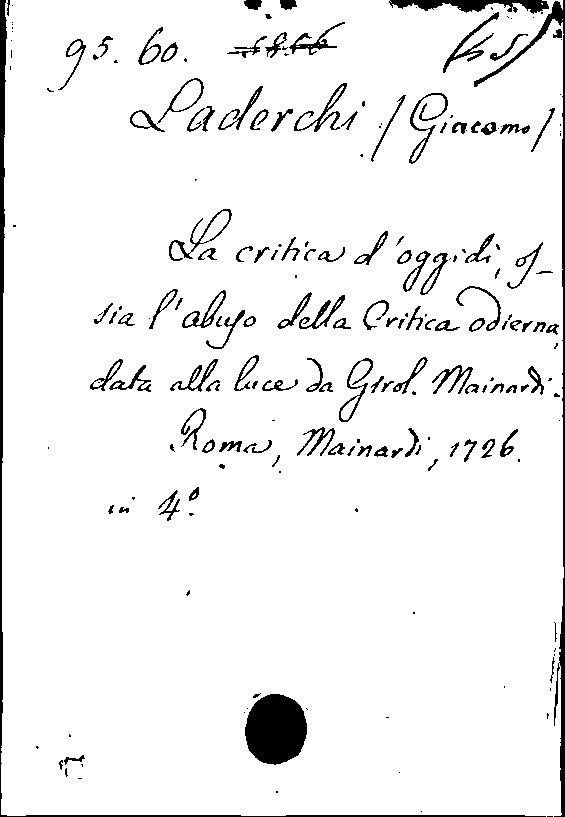 95. 60. 5856 (45)
Laderchi (Giacomo)
La critica d'oggidi, os-
sia l'abuso della Critica odierna,
data alla luce da Girol. Mainardi.
Roma, Mainardi, 1726.
in 4º.